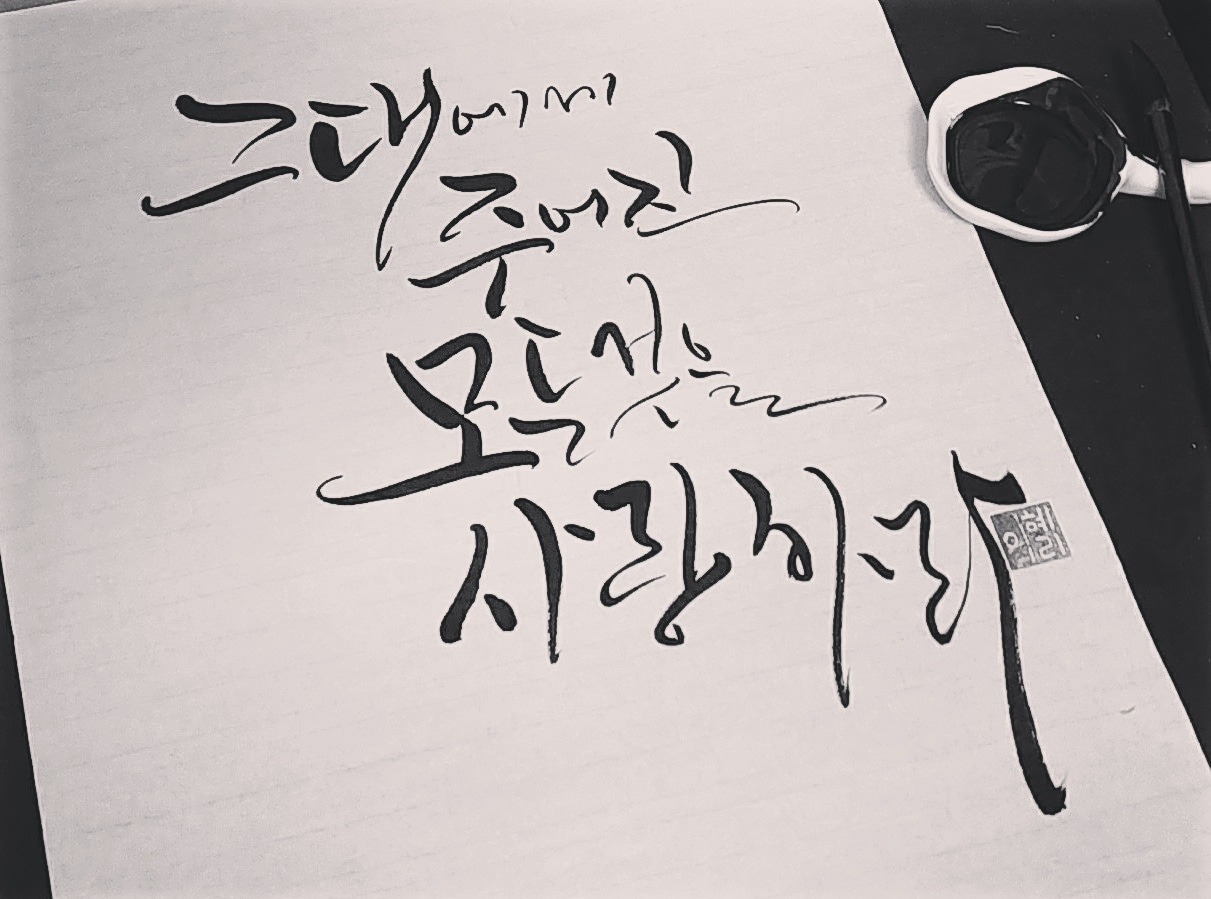 그대에게
주어진
모든것을
사랑하라